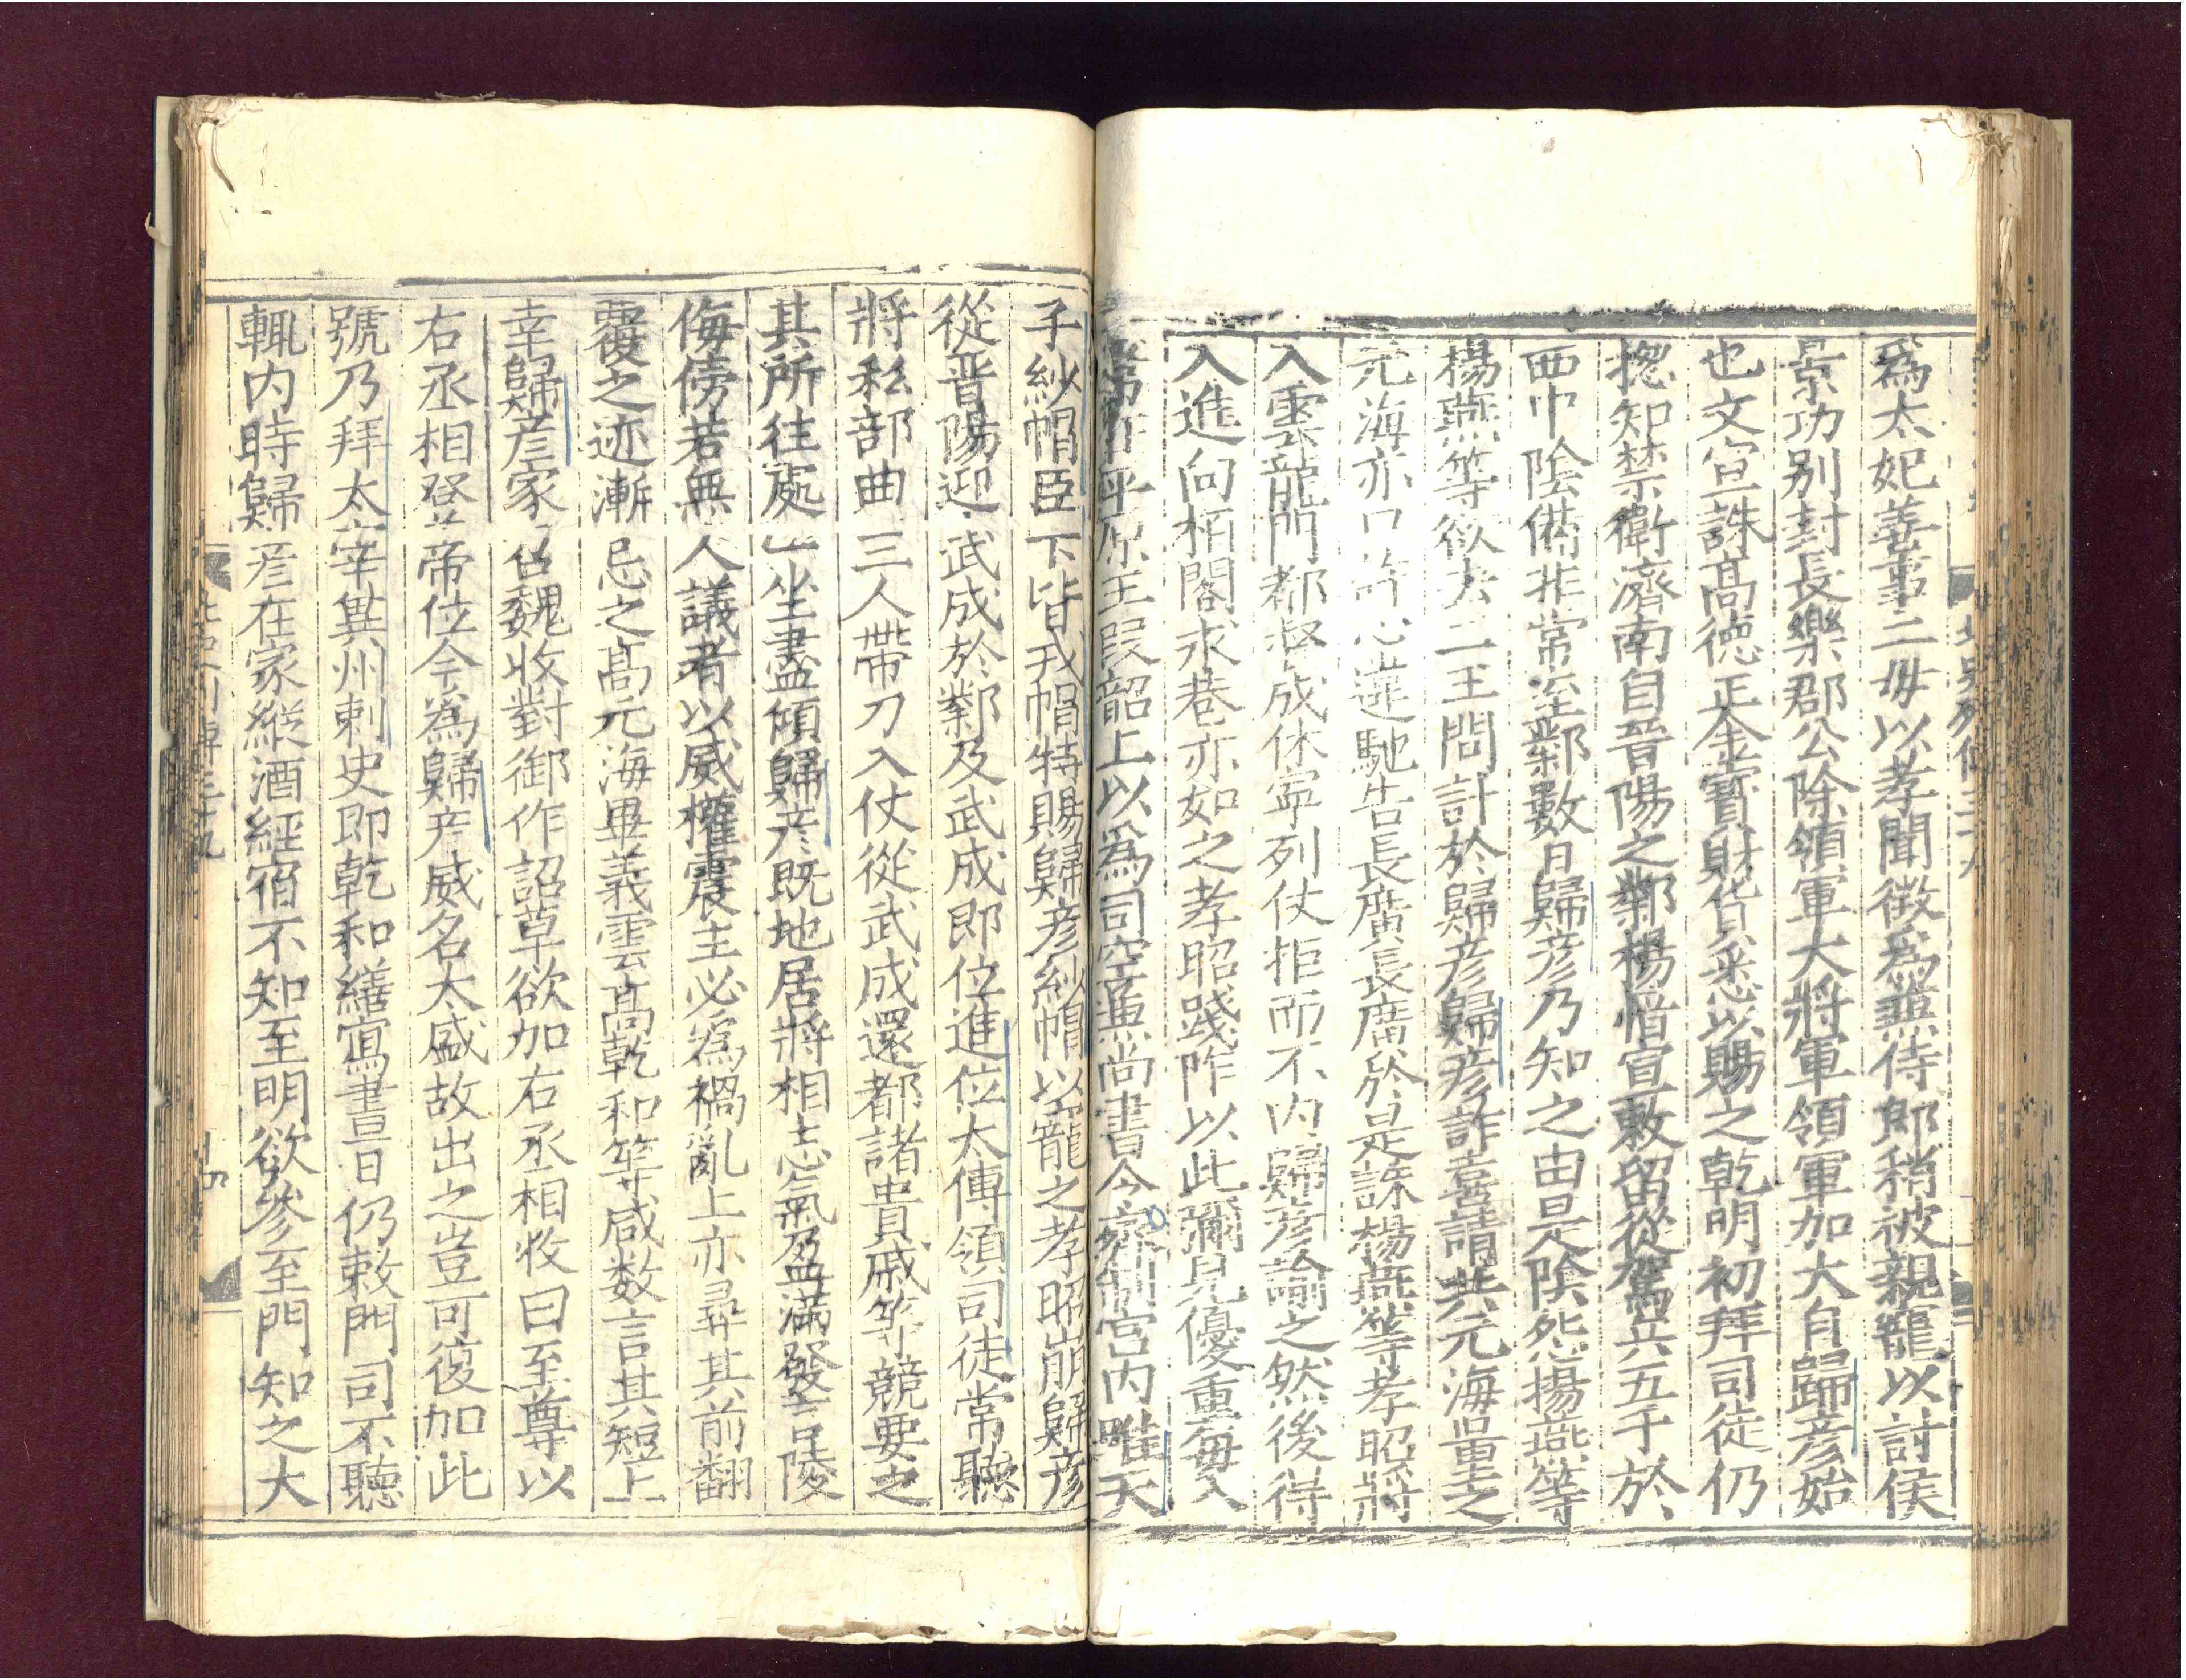 爲太妃善事二母以孝聞徵爲兼侍郎稍被親寵以討侯
景功别封長樂郡公除領軍大將軍領軍加大自歸彦始
也文宣誅高德正金寶財貨悉以賜之乾明初拜司徒仍
揔知禁衛濟南自晉陽之鄴楊愔宣敕留從駕兵五千於
西中陰備非常至鄴數日歸彦乃知之由是陰怨楊燕等
楊燕等欲去二王問計於歸彦歸彦詐喜請共元海量之
元海亦口許心違馳告長廣長廣於是誅楊燕等孝昭將
入雲龍門都督成休寧列仗拒而不内歸彦諭之然後得
入進向柏閤永巷亦如之孝昭踐阼以此彌見優重每入
常在平原王段韶上以爲司空兼尚書令齊制宮内唯天
子紗帽臣下皆戎帽特賜歸彦紗帽以寵之孝昭崩歸彦
從晉陽迎武成於鄴及武成即位進位太傅領司徒常聽
將私部曲三人帶刀入仗從武成還都諸貴戚等競要之
其所往處一坐盡傾歸彦既地居將相志氣盈滿發言陵
侮傍若無人議者以威權震主必爲禍亂上亦尋其前翻
覆之迹漸忌之高元海畢義雲高乾和等咸数言其短上
幸歸彦家召魏收對御作詔草欲加右丞相收曰至尊以
右丞相登帝位今爲歸彦威名太盛故出之豈可復加此
號乃拜太宰冀州刺史即乾和繕寫晝日仍敕門司不聽
輒内時歸彦在家縱酒經宿不知至明欲參至門知之大